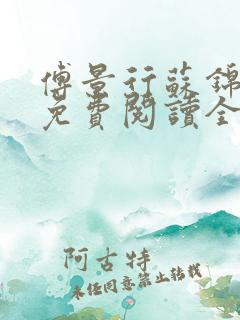 傅景行蘇錦
免費閱讀全
阿古特
未经同意禁止转载